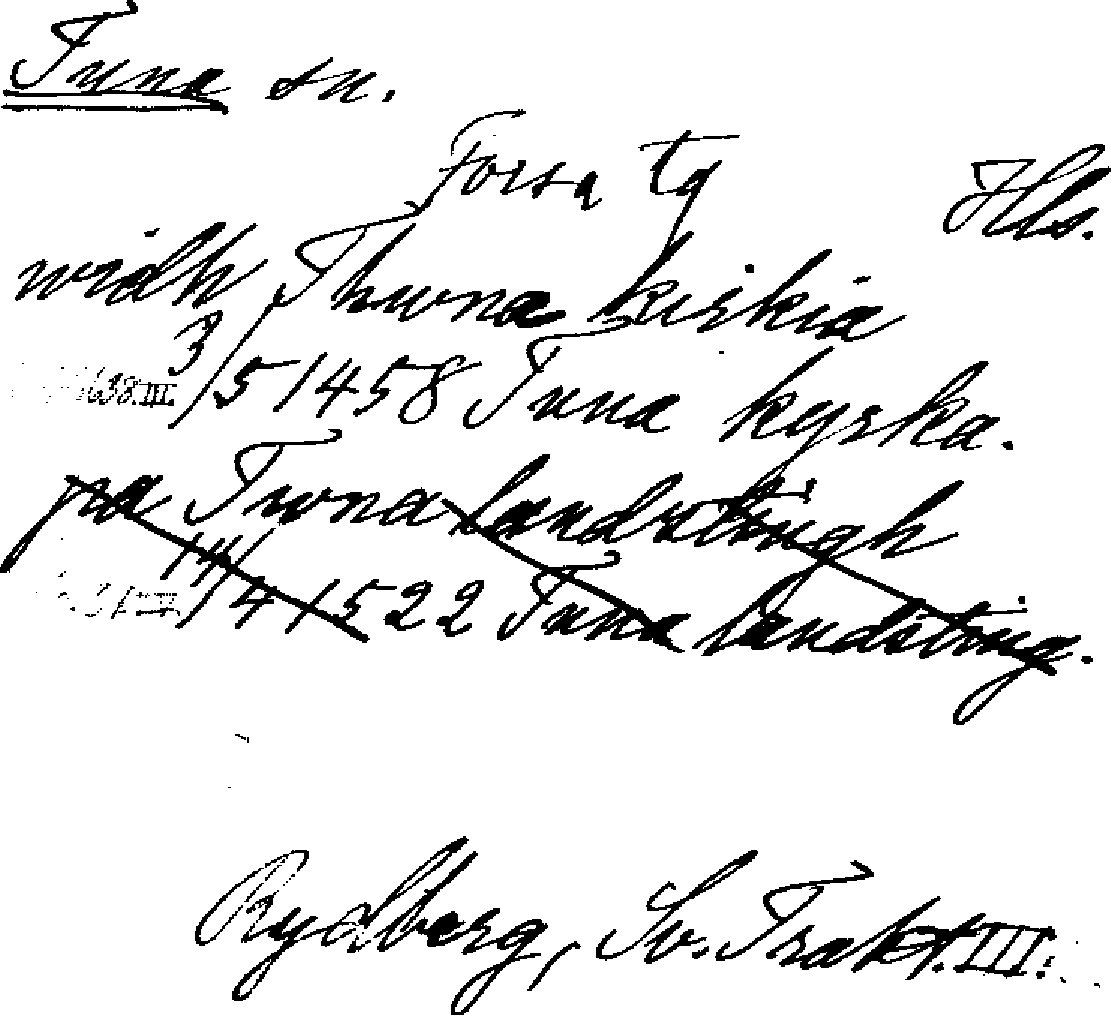 Tuna sn.
Forsa tg Hls.
widh Thwna kirkia
638.III. 3/5 1458 Tuna kyrka.
pa Twna landzstingh
14/4 1522 Tuna landsting.
Rydberg, Sv. Trakt. III.